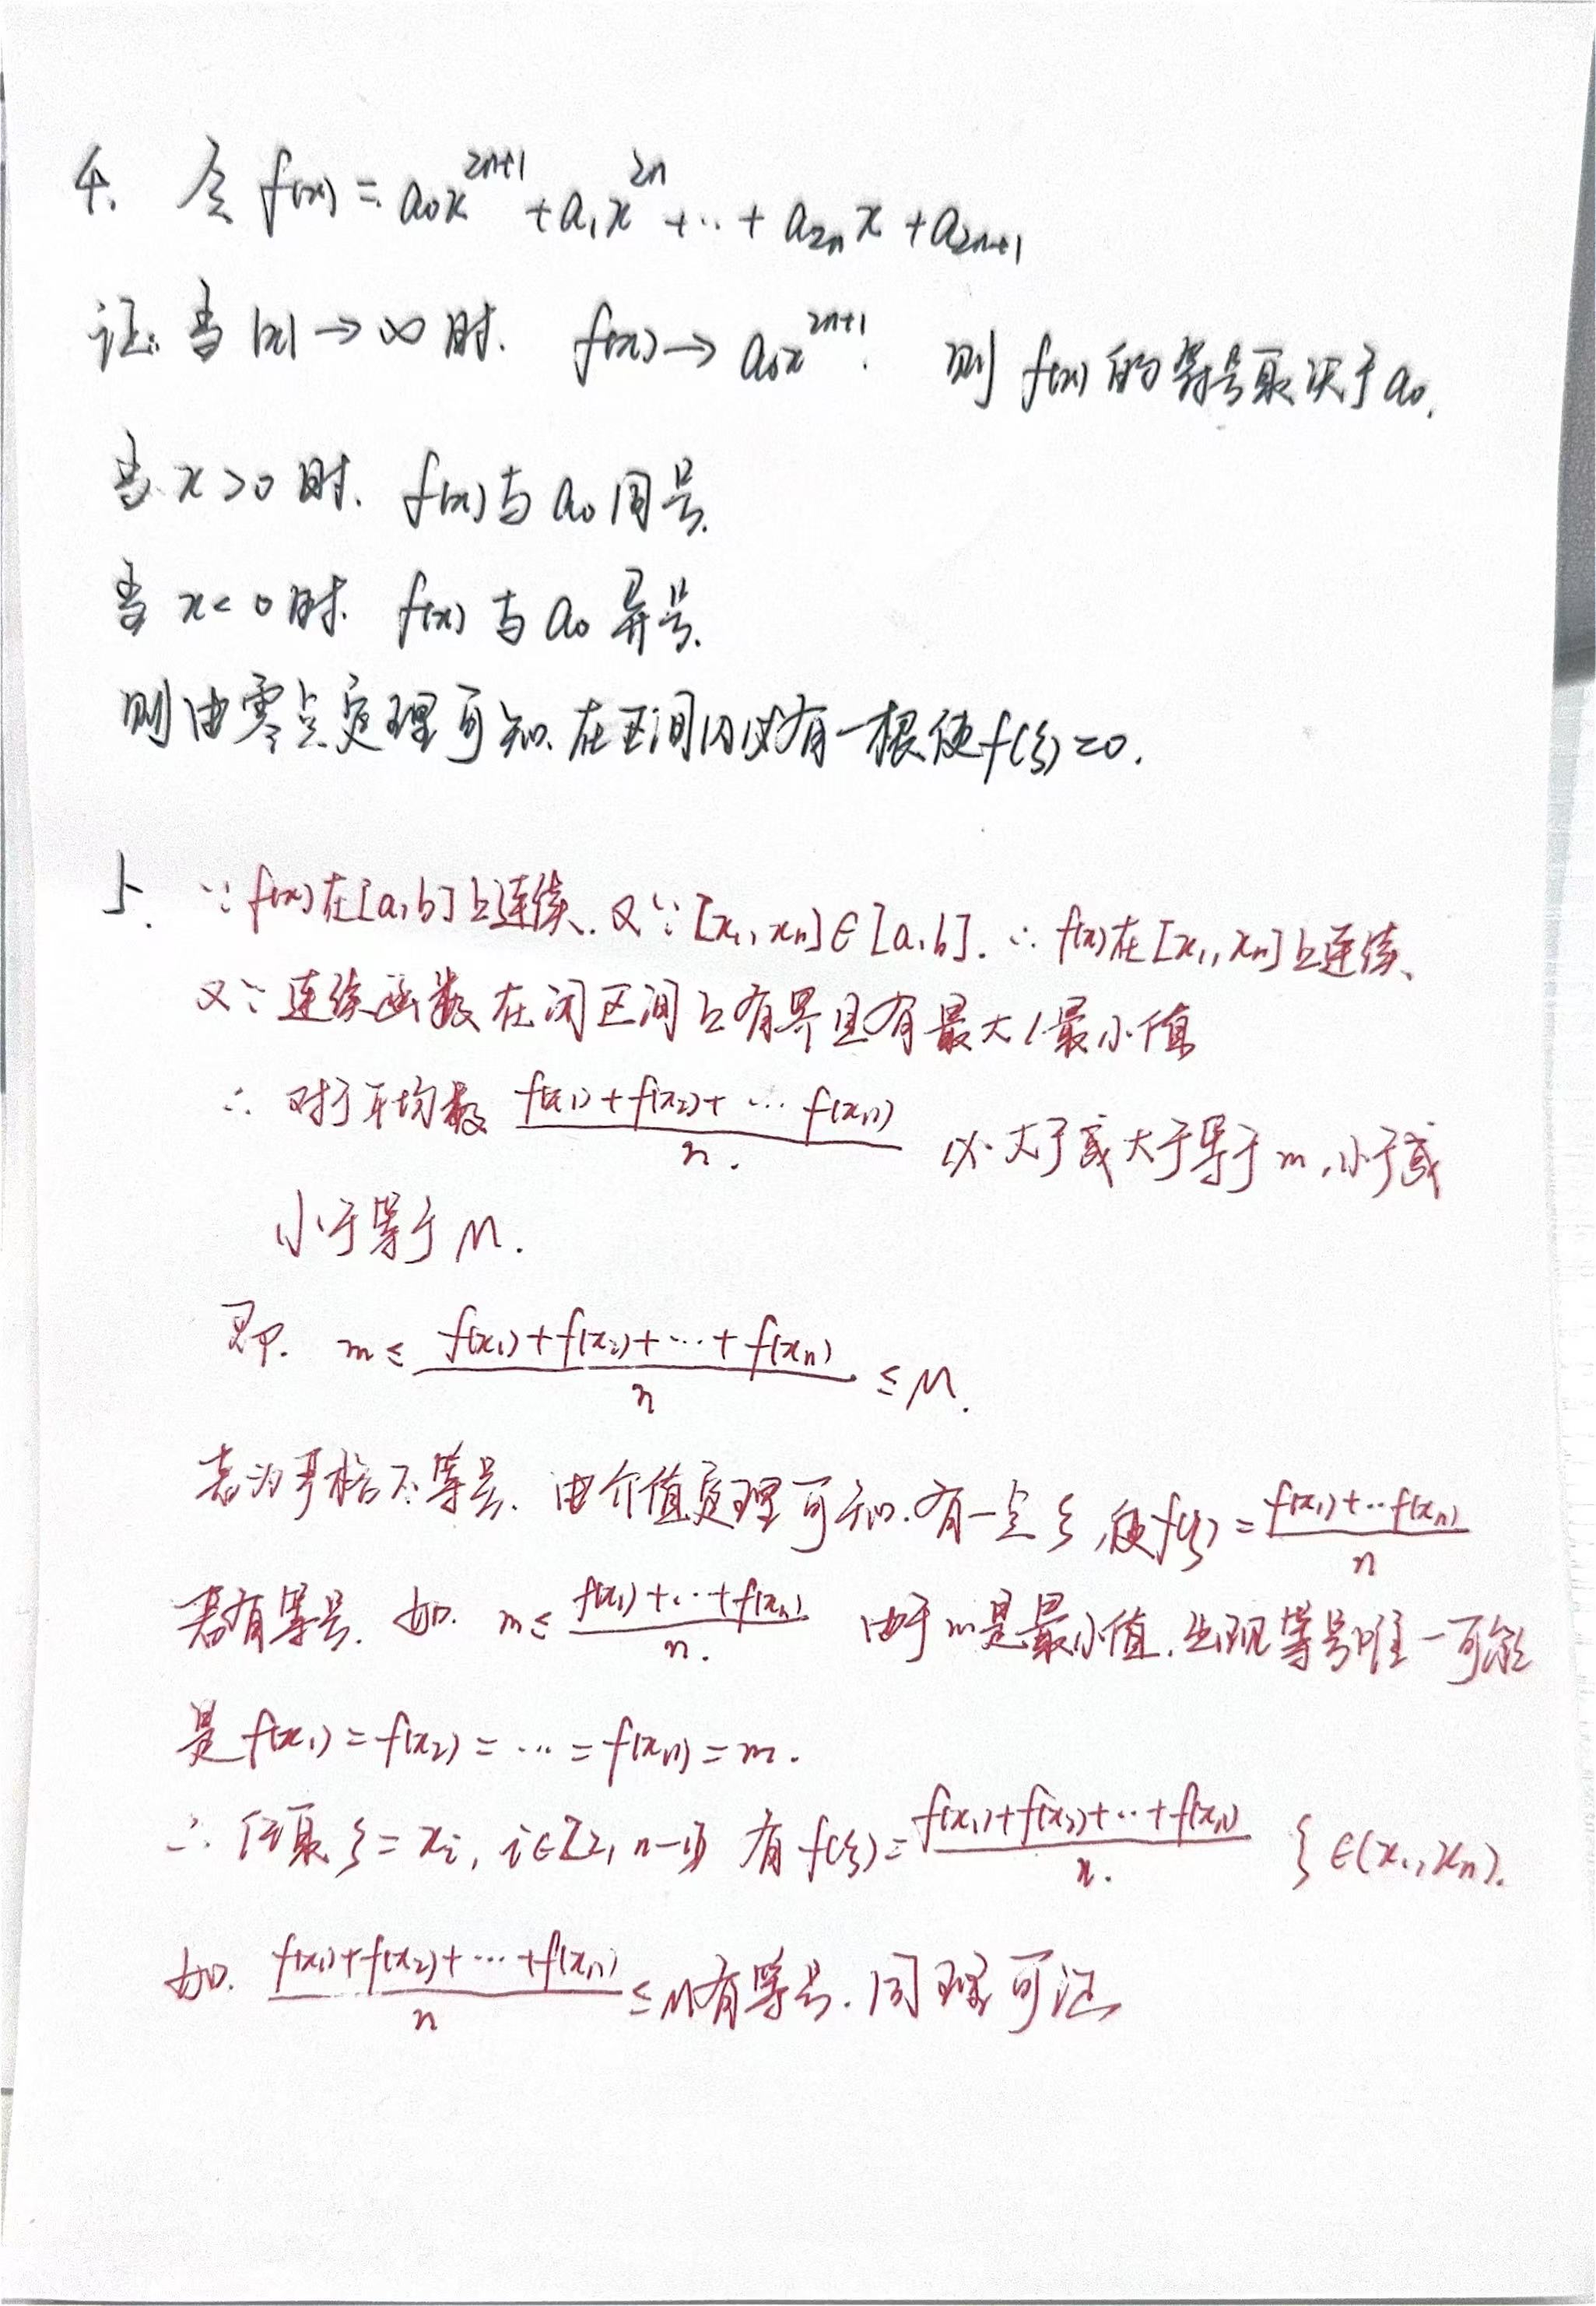 4. 令 f(x) = a₀x²ⁿ⁺¹ + a₁x²ⁿ + ⋯ + a₂ₙx + a₂ₙ₊₁
证: 当 |x| → ∞ 时. f(x) → a₀x²ⁿ⁺¹. 则 f(x) 的符号取决于 a₀.
当 x > 0 时. f(x) 与 a₀ 同号.
当 x < 0 时. f(x) 与 a₀ 异号.
则由零点定理可知. 在区间内必有一根使 f(ξ) = 0.
5. ∵ f(x) 在 [a, b] 上连续. 又∵ [x₁, xₙ] ∈ [a, b]. ∴ f(x) 在 [x₁, xₙ] 上连续、
又∵ 连续函数在闭区间上有界且有最大/最小值
∴ 对于平均数 (f(x₁) + f(x₂) + ⋯ f(xₙ))/n. 必大于或大于等于 m, 小于或
小于等于 M.
即. m ≤ (f(x₁) + f(x₂) + ⋯ + f(xₙ))/n ≤ M.
若为严格不等号. 由介值定理可知. 有一点 ξ, 使 f(ξ) = (f(x₁) + ⋯ f(xₙ))/n
若有等号. 如. m ≤ (f(x₁) + ⋯ + f(xₙ))/n. 由于 m 是最小值. 出现等号唯一可能
是 f(x₁) = f(x₂) = ⋯ = f(xₙ) = m.
∴ 任取 ξ = xᵢ, i ∈ [2, n-1] 有 f(ξ) = (f(x₁) + f(x₂) + ⋯ + f(xₙ))/n. ξ ∈ (x₁, xₙ).
如. (f(x₁) + f(x₂) + ⋯ + f(xₙ))/n ≤ M 有等号. 同理可证